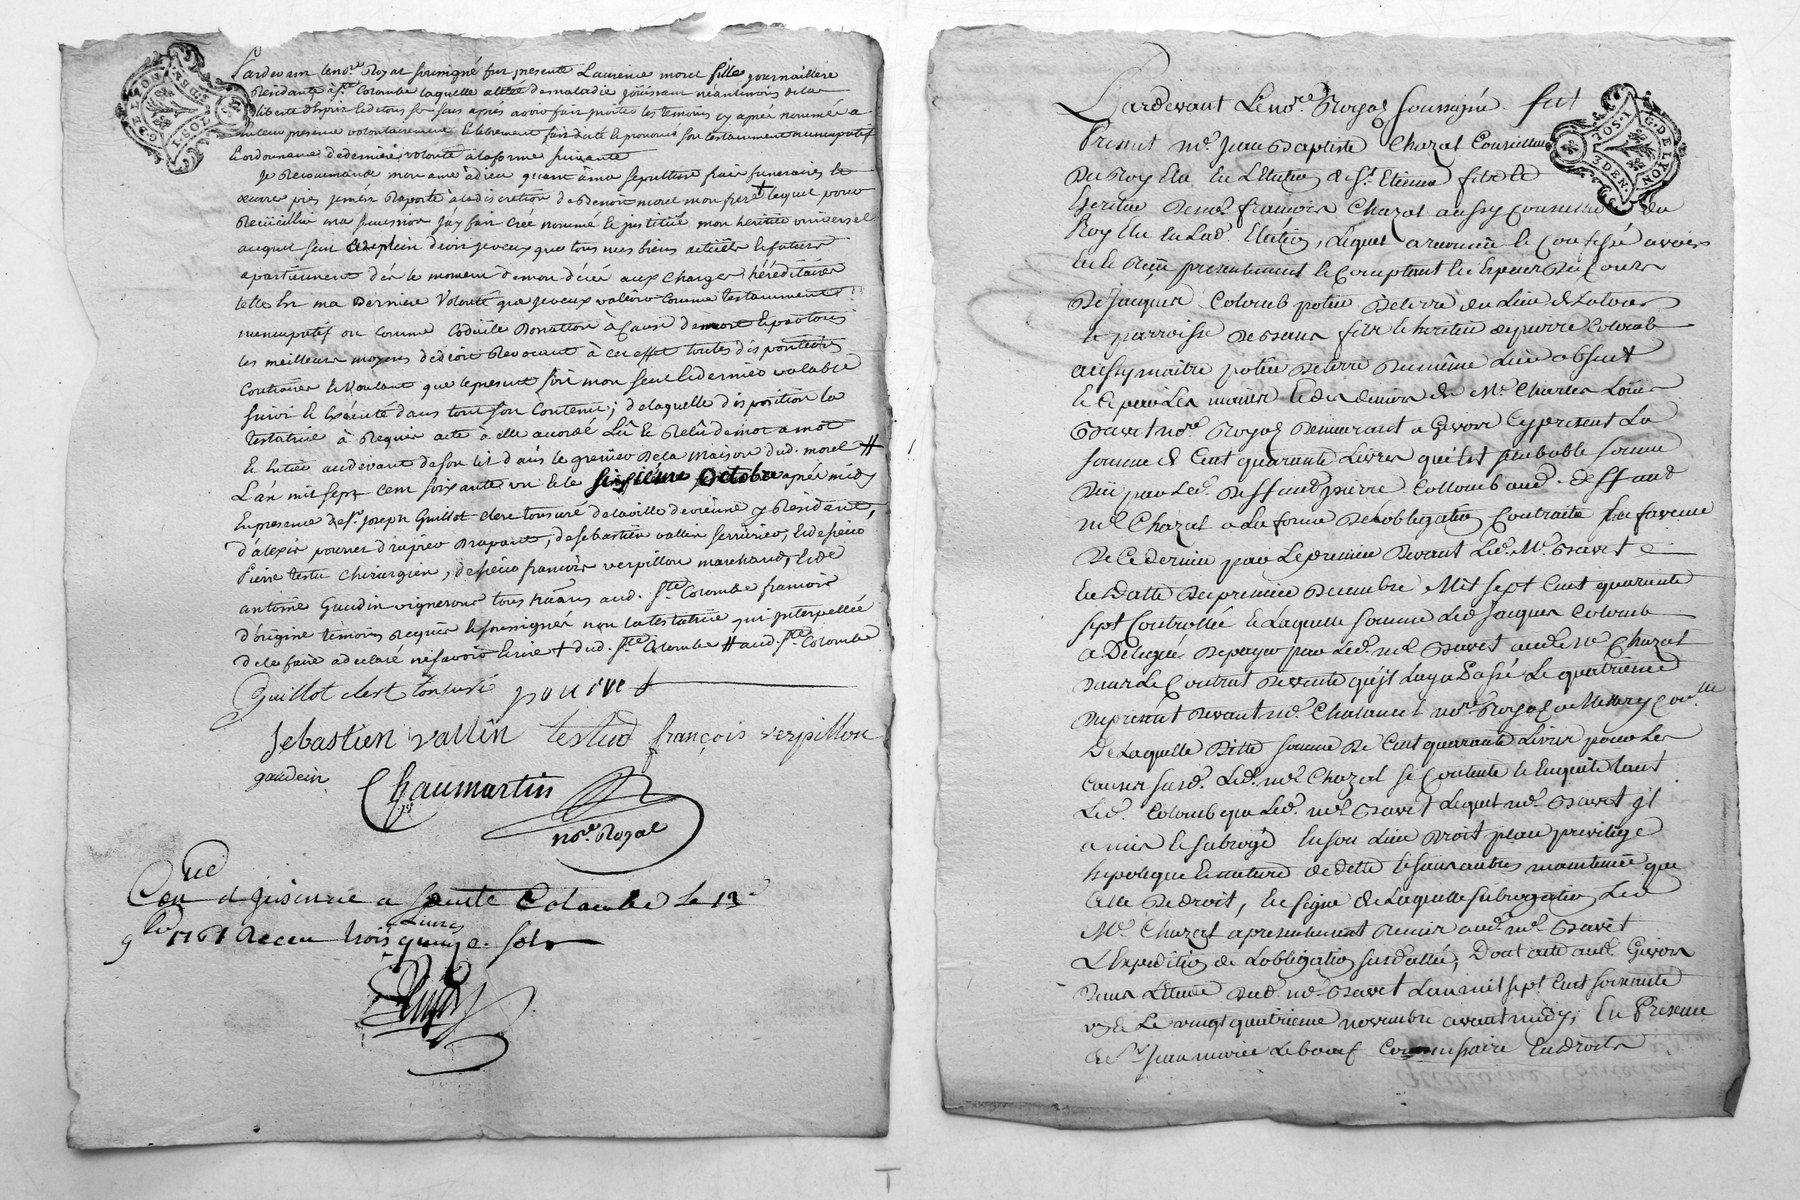 G. DE LYON
1 SOL
3 DEN.
Pardevant le no.re Royal soussigné fut presente Laurence morel fille journalliere
Residante a s.te Colombe laquelle de maladie jouissant néantmoins de la
liberté d'esprit et de tous ses sens après avoir fait les temoins cy après nommés a
presence volontairement et librement fait dicté et prononcé son testament nuncupatif
et ordonnance de derniere volonté a la forme suivante
je Recommande mon ame à dieu quant à ma sepulture frais funeraires et
œuvres pies j'en Raporte à la discretion de Benoit morel mon frere + lequel pour
Recueillir ma succession j'ay fait créé nommé et institué mon heritier universel
auquel seul et de plein droit je veux que tous mes biens actuels et futurs
apartiennent dès le moment de mon décès aux charges héréditaires
telle est ma Derniere Volonté que je veux valloir comme testament
nuncupatif ou comme Codicille Donnation à Cause de mort et par tous
les meilleurs moyens de droit Revocant à cet effet toutes dispositions
Contraires et Voulant que le present soit mon seul et dernier valable
suivi et exécuté dans tout son Contenu; de laquelle disposition la
testatrice à Requis acte à elle accordé Lû et Relû de mot a mot
au devant de son lit dans le grenier de la Maison dud. morel #
L'an mil sept cent soixante un et le sixsieme Octobre après midy
En presence de s.r joseph Guillot clerc tonsuré de la ville de vienne y Residant,
d'alexis pourret drapier Drapant, de sebastien vallin serrurier, et de sieur
Pierre testu chirurgien, de sieur françois verpillon marchand, et de
antoine Gaudin vigneron tous habitans aud. s.te Colombe françois
d'origine temoins Requis et soussignés non la testatrice qui interpellée
de le faire a declaré ne savoir Ecrire + dud. s.te Colombe # aud. s.te Colombe
Guillot clerc tonsuré pourret
sebastien vallin testud françois verpillon
gaudein
Chaumartin
no.re Royal
Con.lé et insinué a sainte Colombe le 13.e
8bre 1761 Receu trois Livres quinze sols
G. DE LYON
1 SOL
3 DEN.
Pardevant Le no.re Royal soussigné. fut
Présent m.e Jean Baptiste Chazal Conseiller
Du Roy Elu En L'Election de S.t Etienne fils et
heritier de m.e françois Chazal aussy Conseiller du
Roy Elu En Lad. Election, Lequel a reconnu et Confessé avoir
Eu et Reçu presentement et Comptant En Especes Du Cours
De Jacques Colomb potier De terre du Lieu de
parroisse De fils et heritier de pierre Colomb
aussy maitre potier De terre Du même Lieu absent
et ce par Les mains et des deniers de M.e Charles Louis
Bavet no.re Royal Demeurant a Givors Cy present La
somme de Cent quarante Livres qui est semblable somme
Duë par Led. Deffunt pierre Collomb aud. deffunt
m.e Chazal a La forme De L'obligation Contractée En faveur
De Ce dernier par Le premier Devant Led. M.e Bavet
En Datte Du premier Decembre Mil sept Cent quarante
sept Controllée et Laquelle somme Led. Jacques Colomb
a Delegué De payer par Led. m.e Bavet aud. m.e Chazal
Dans Le Contrat De vente qu'il Luy a Passé Le quatrieme
Du present Devant m.e Chalancet no.re Royal a
De Laquelle Ditte somme De Cent quarante Livres pour Les
Causes susd. Led. m.e Chazal se Contente et En quitte tant
Led. Colomb que Led. m.e Bavet Lequel m.e Bavet il
a mis et subrogé En son Lieu Droit place privilege
hipoteque et nature de dette et sans autres maintenüe que
Celle De droit, En signe de Laquelle subrogation Led
M.e Chazal a presentement Remis aud. m.e Bavet
L'Expedition de L'obligation susdattée, Dont acte aud. Givors
Dans L'Etude dud. m.e Bavet L'an mil sept Cent soixante
un et Le vingt quatrieme novembre avant midy, En Presence
de S.r Jean marie Leboeuf Commissaire En Droits